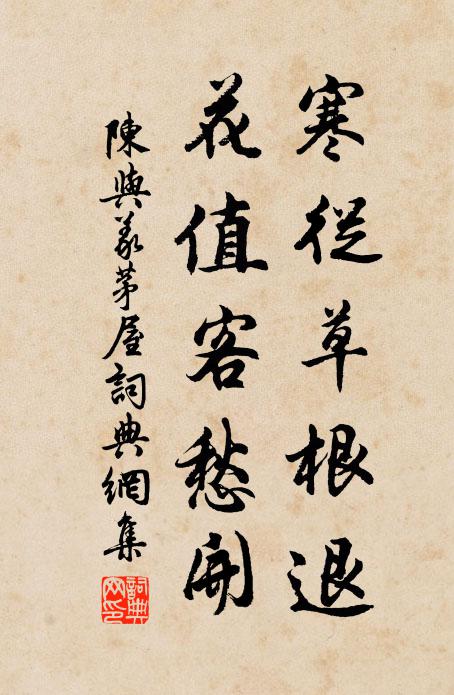 寒從草根退
花值客愁開
陳與義茅屋詞典網集
詞典网印